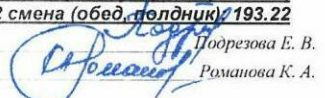 2 смена (обед, полдник) 193.22
Подрезова Е. В.
Романова К. А.